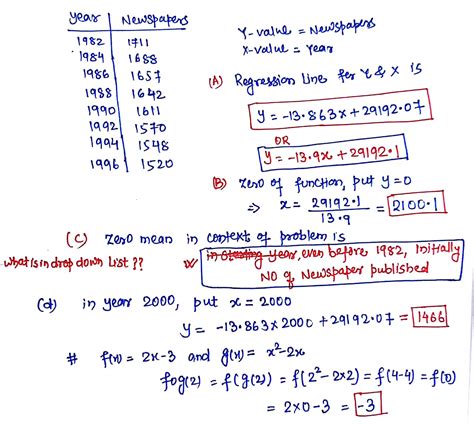 Year | Newspapers
1982 | 1711
1984 | 1688
1986 | 1657
1988 | 1642
1990 | 1611
1992 | 1570
1994 | 1548
1996 | 1520
Y-value = Newspapers
X-value = Year
(A) Regression line for Y & X is
y = -13.863x + 29192.07
OR
y = -13.9x + 29192.1
(B) zero of function, put y=0
⇒ x = 29192.1 / 13.9 = 2100.1
(C) zero mean in context of problem is
what is in drop down list ??
in starting year, even before 1982, initially
NO of Newspaper published
(d) in year 2000, put x = 2000
y = -13.863 x 2000 + 29192.07 = 1466
# f(x) = 2x-3 and g(x) = x²-2x
fog(2) = f(g(2)) = f(2²-2x2) = f(4-4) = f(0)
= 2x0-3 = -3